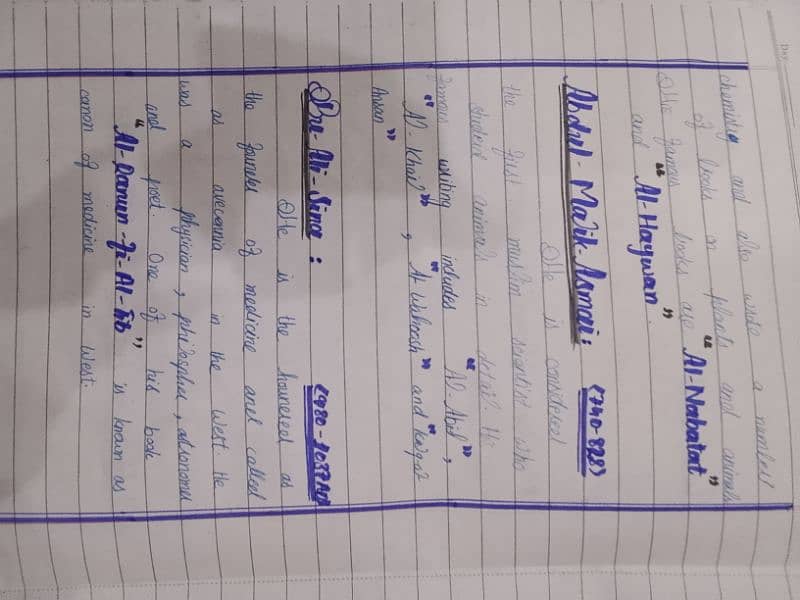 Day
chemistry and also wrote a number
of books on plants and animals
His famous books are "Al-Nabatat"
and "Al-Haywan".
Abdul-Malik-Asmai: (740-828)
He is considered
the first muslim scientist who
student animals in detail. His
famous writing includes "Al-Abil",
"Al. Khail", "Al-Wahoosh" and
Ansan"
Abu-Ali-Sina: (980-1037AD)
He is the honered as
the founder of medicine and called
as avecenia in the West. He
was a physician, philospher, astronomer
and poet. One of his book
"Al-Qanun-Fi-Al-Tib" is known as
canon of medicine in West.